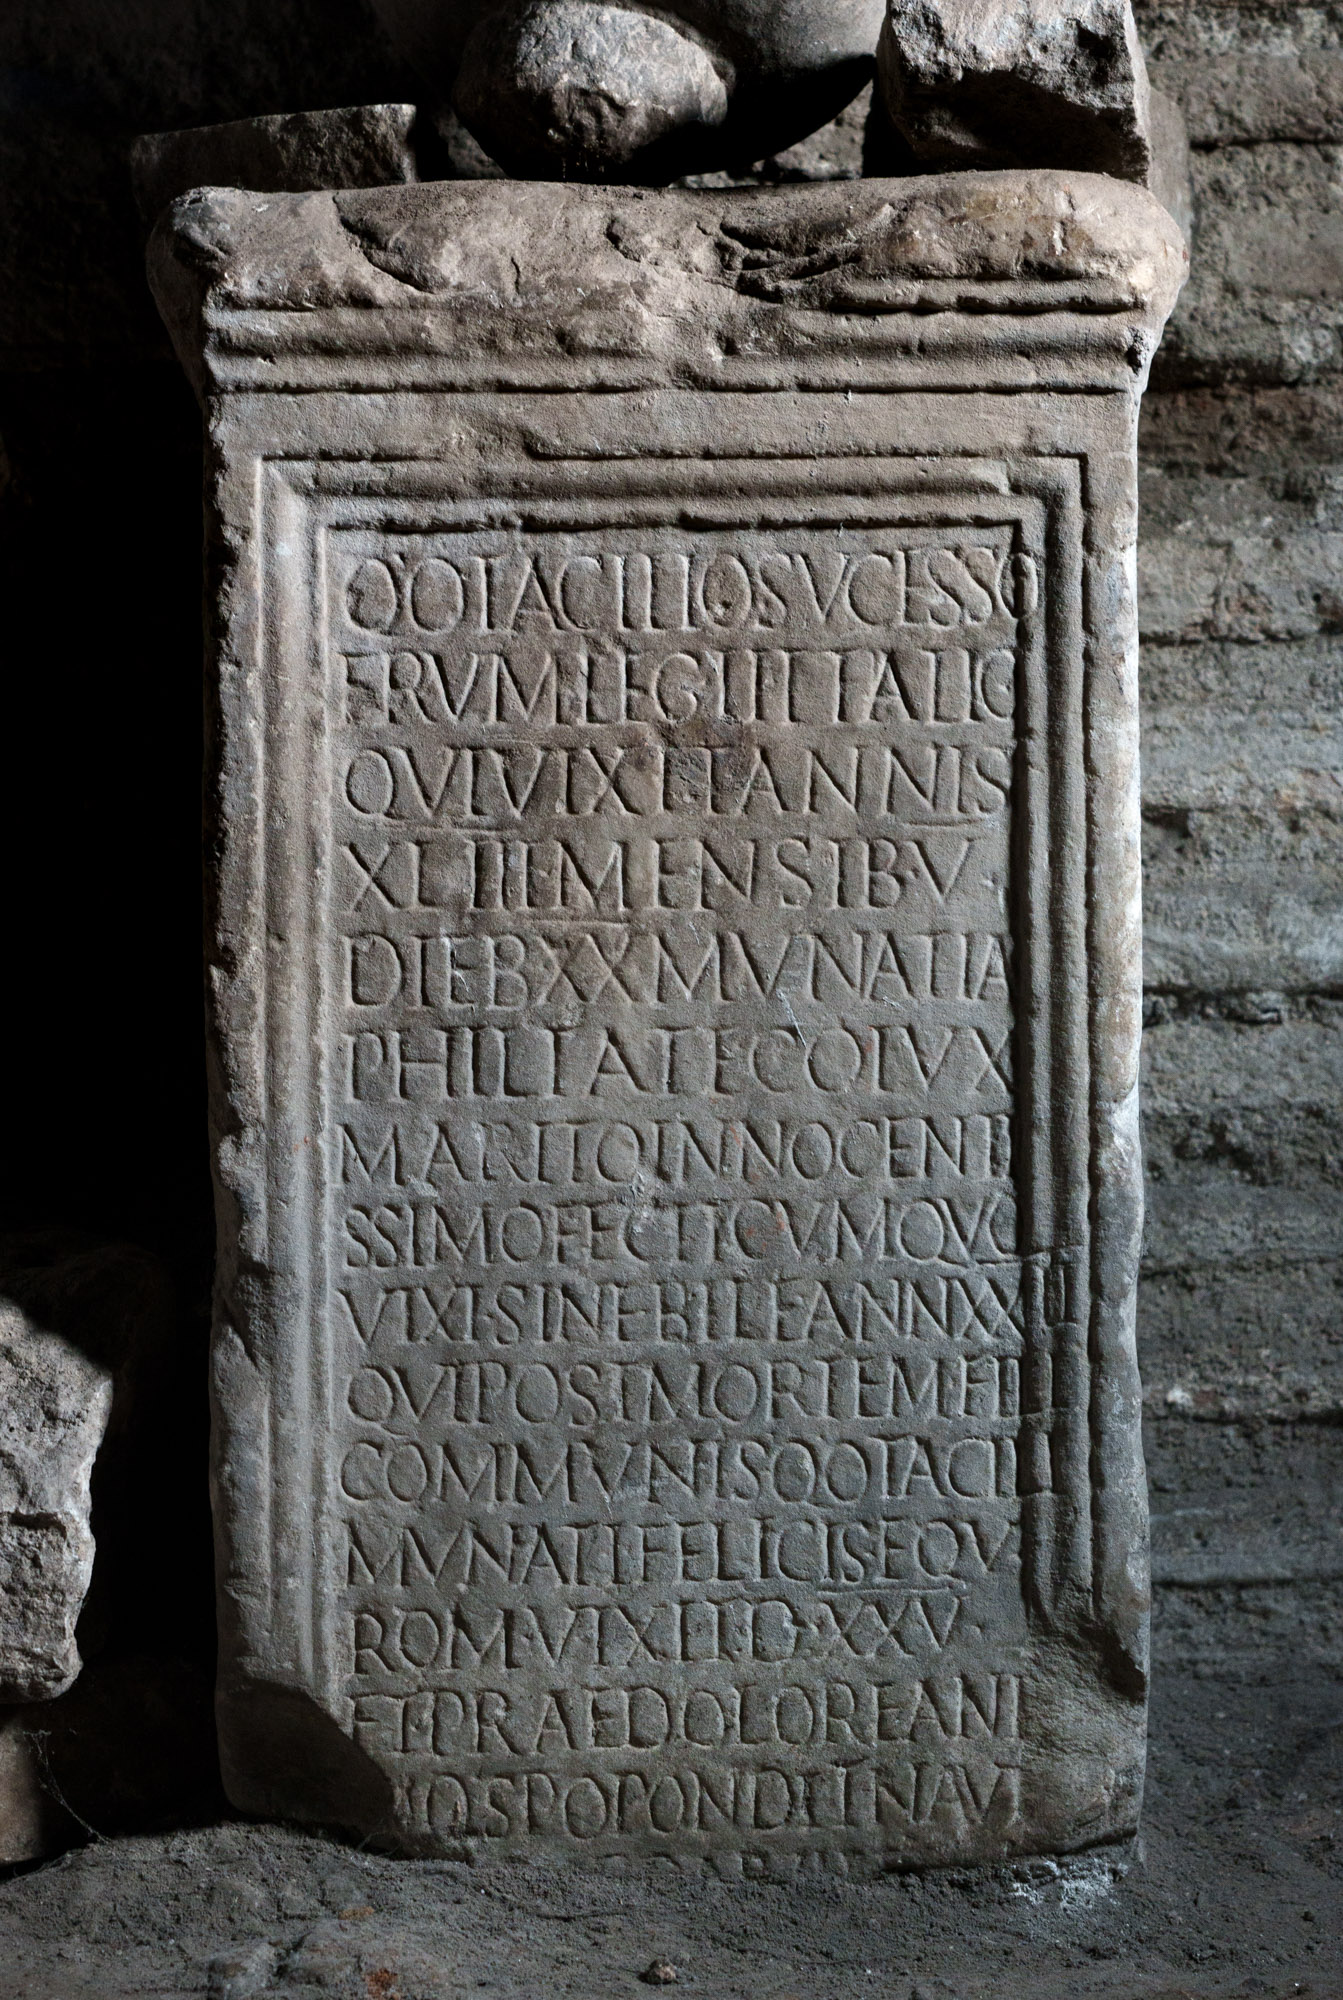 Q OTACILIO SVCESSO
FRVM LEG II ITALIC
QVI VIXIT ANNIS
XLIII MENSIB V
DIEB XX MVNATIA
PHILTATE COIVX
MARITO INNOCENTI
SSIMO FECIT CVM QVO
VIXI SINE BILE ANN XXIII
QVI POST MORTEM FILI
COMMVNIS Q OTACILI
MVNATI FELICIS EQV
ROM VIXIT D XXV
ET PRAE DOLORE ANI
SPOPONDIT NAVI